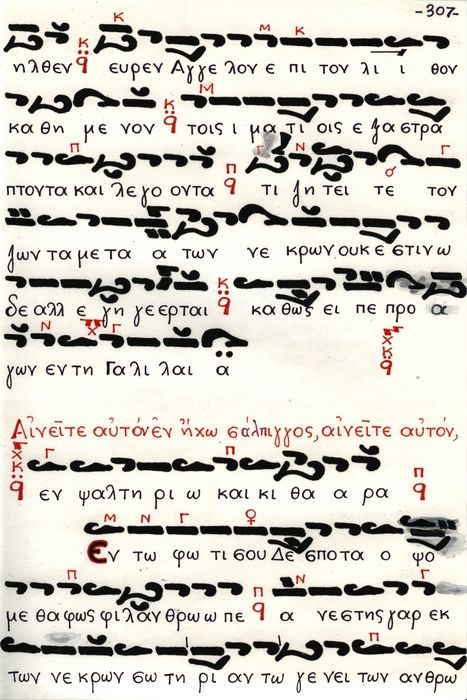 -307-
ηλθεν ευρεν Αγγελον ε πι τον λι ι θον
κα θη με νον τοις ι μα τι οις ε ξα στρα
πτοντα και λε γο οντα τι ζη τει τε τον
ζων τα με τα α των νε κρων ουκ ε στιν ω
δε αλλ ε γη γε ερται κα θως ει πε προ α
γων εν τη Γα λι λαι α
Αἰνεῖτε αὐτόν ἐν ἤχω σάλπιγγος, αἰνεῖτε αὐτόν,
εν ψαλτη ρι ω και κι θα α ρα
Εν τω φω τι σου Δε σποτα ο ψο
με θα φως φι λαν θρω ω πε α νεστης γαρ εκ
των νε κρων σω τη ρι αν τω γε νει των ανθρω